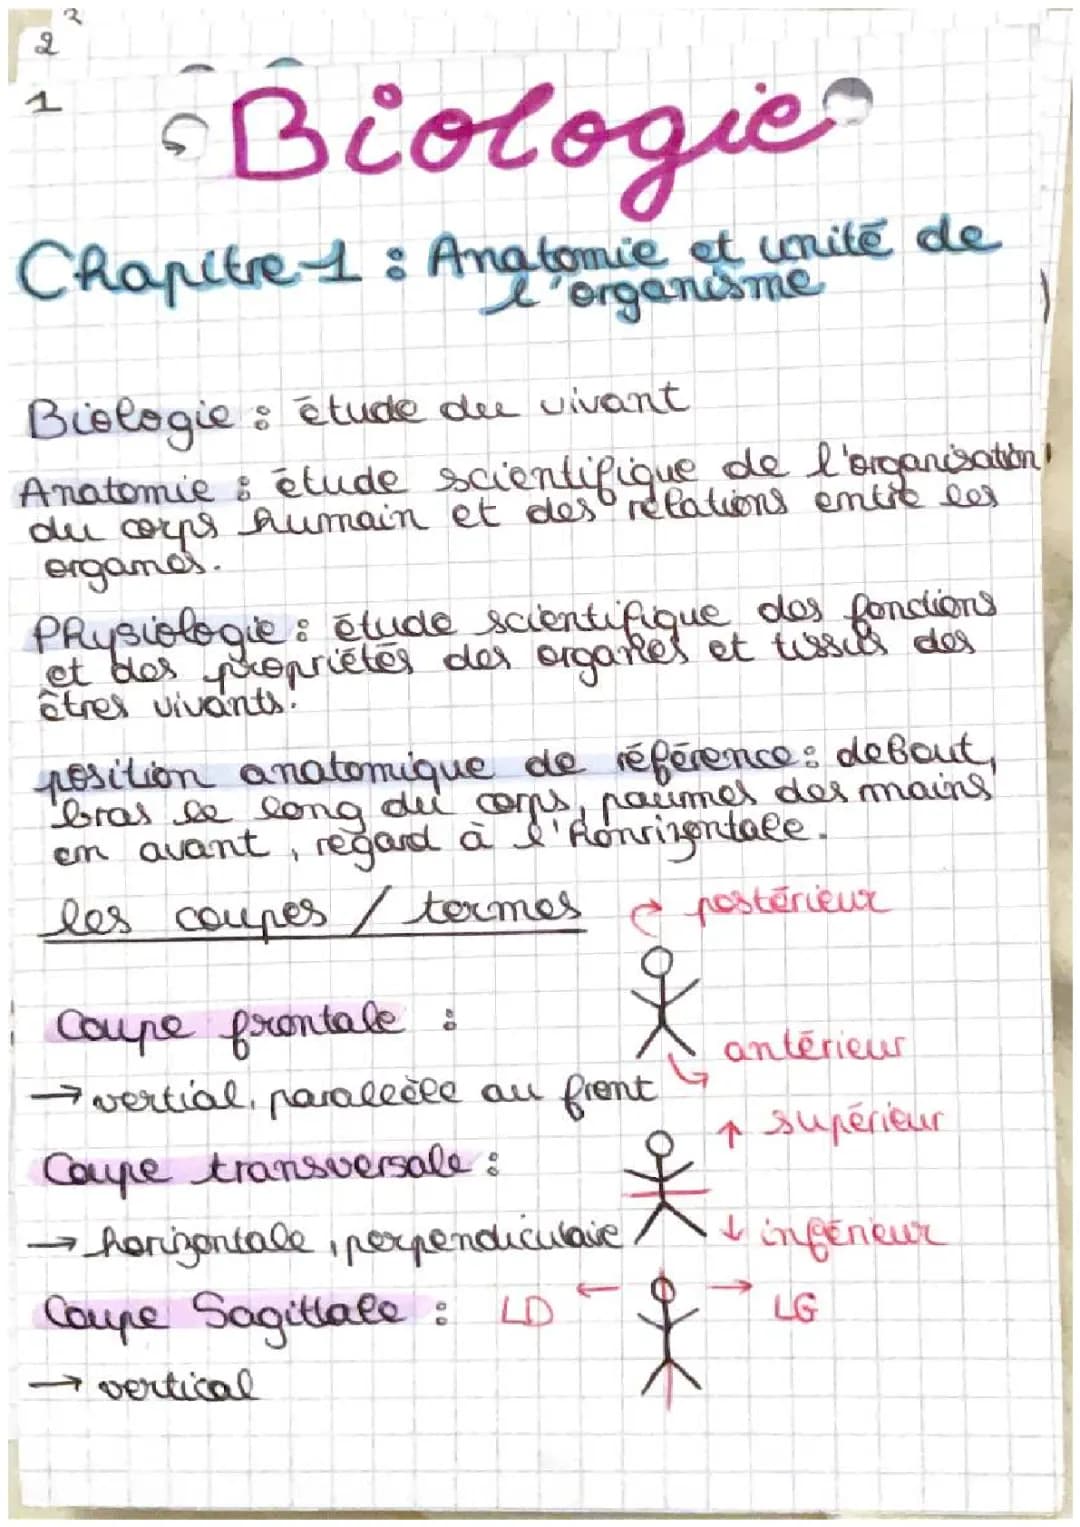 2
2
1
Biologie
Chapitre 1 : Anatomie et unité de
l'organisme
Biologie : étude du vivant
Anatomie : étude scientifique de l'organisation
du corps humain et des relations entre les
organes.
Physiologie : étude scientifique des fonctions
et des propriétés des organes et tissus des
êtres vivants.
position anatomique de référence : debout,
bras le long du corps, paumes des mains
en avant, regard à l'honrizontale.
les coupes / termes
postérieur
Coupe frontale :
antérieur
→ vertial, parallèle au front
↑ supérieur
Coupe transversale :
→ horizontale, perpendiculaire
↓ inférieur
Coupe Sagittale : LD ← → LG
→ vertical